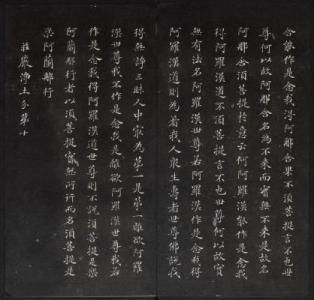 含能作是念我得阿那含果不須菩提言不也世
尊何以故阿那含名為不來而實無不來是故名
阿那含須菩提於意云何阿羅漢能作是念我
得阿羅漢道不須菩提言不也世尊何以故實
無有法名阿羅漢世尊若阿羅漢作是念我得
阿羅漢道則為著我人眾生壽者世尊佛說我
得無諍三昧人中最為第一是第一離欲阿羅
漢世尊我不作是念我是離欲阿羅漢世尊我若
作是念我得阿羅漢道世尊則不說須菩提是樂
阿蘭那行者以須菩提實無所行而名須菩提是
樂阿蘭那行
莊嚴淨土分第十